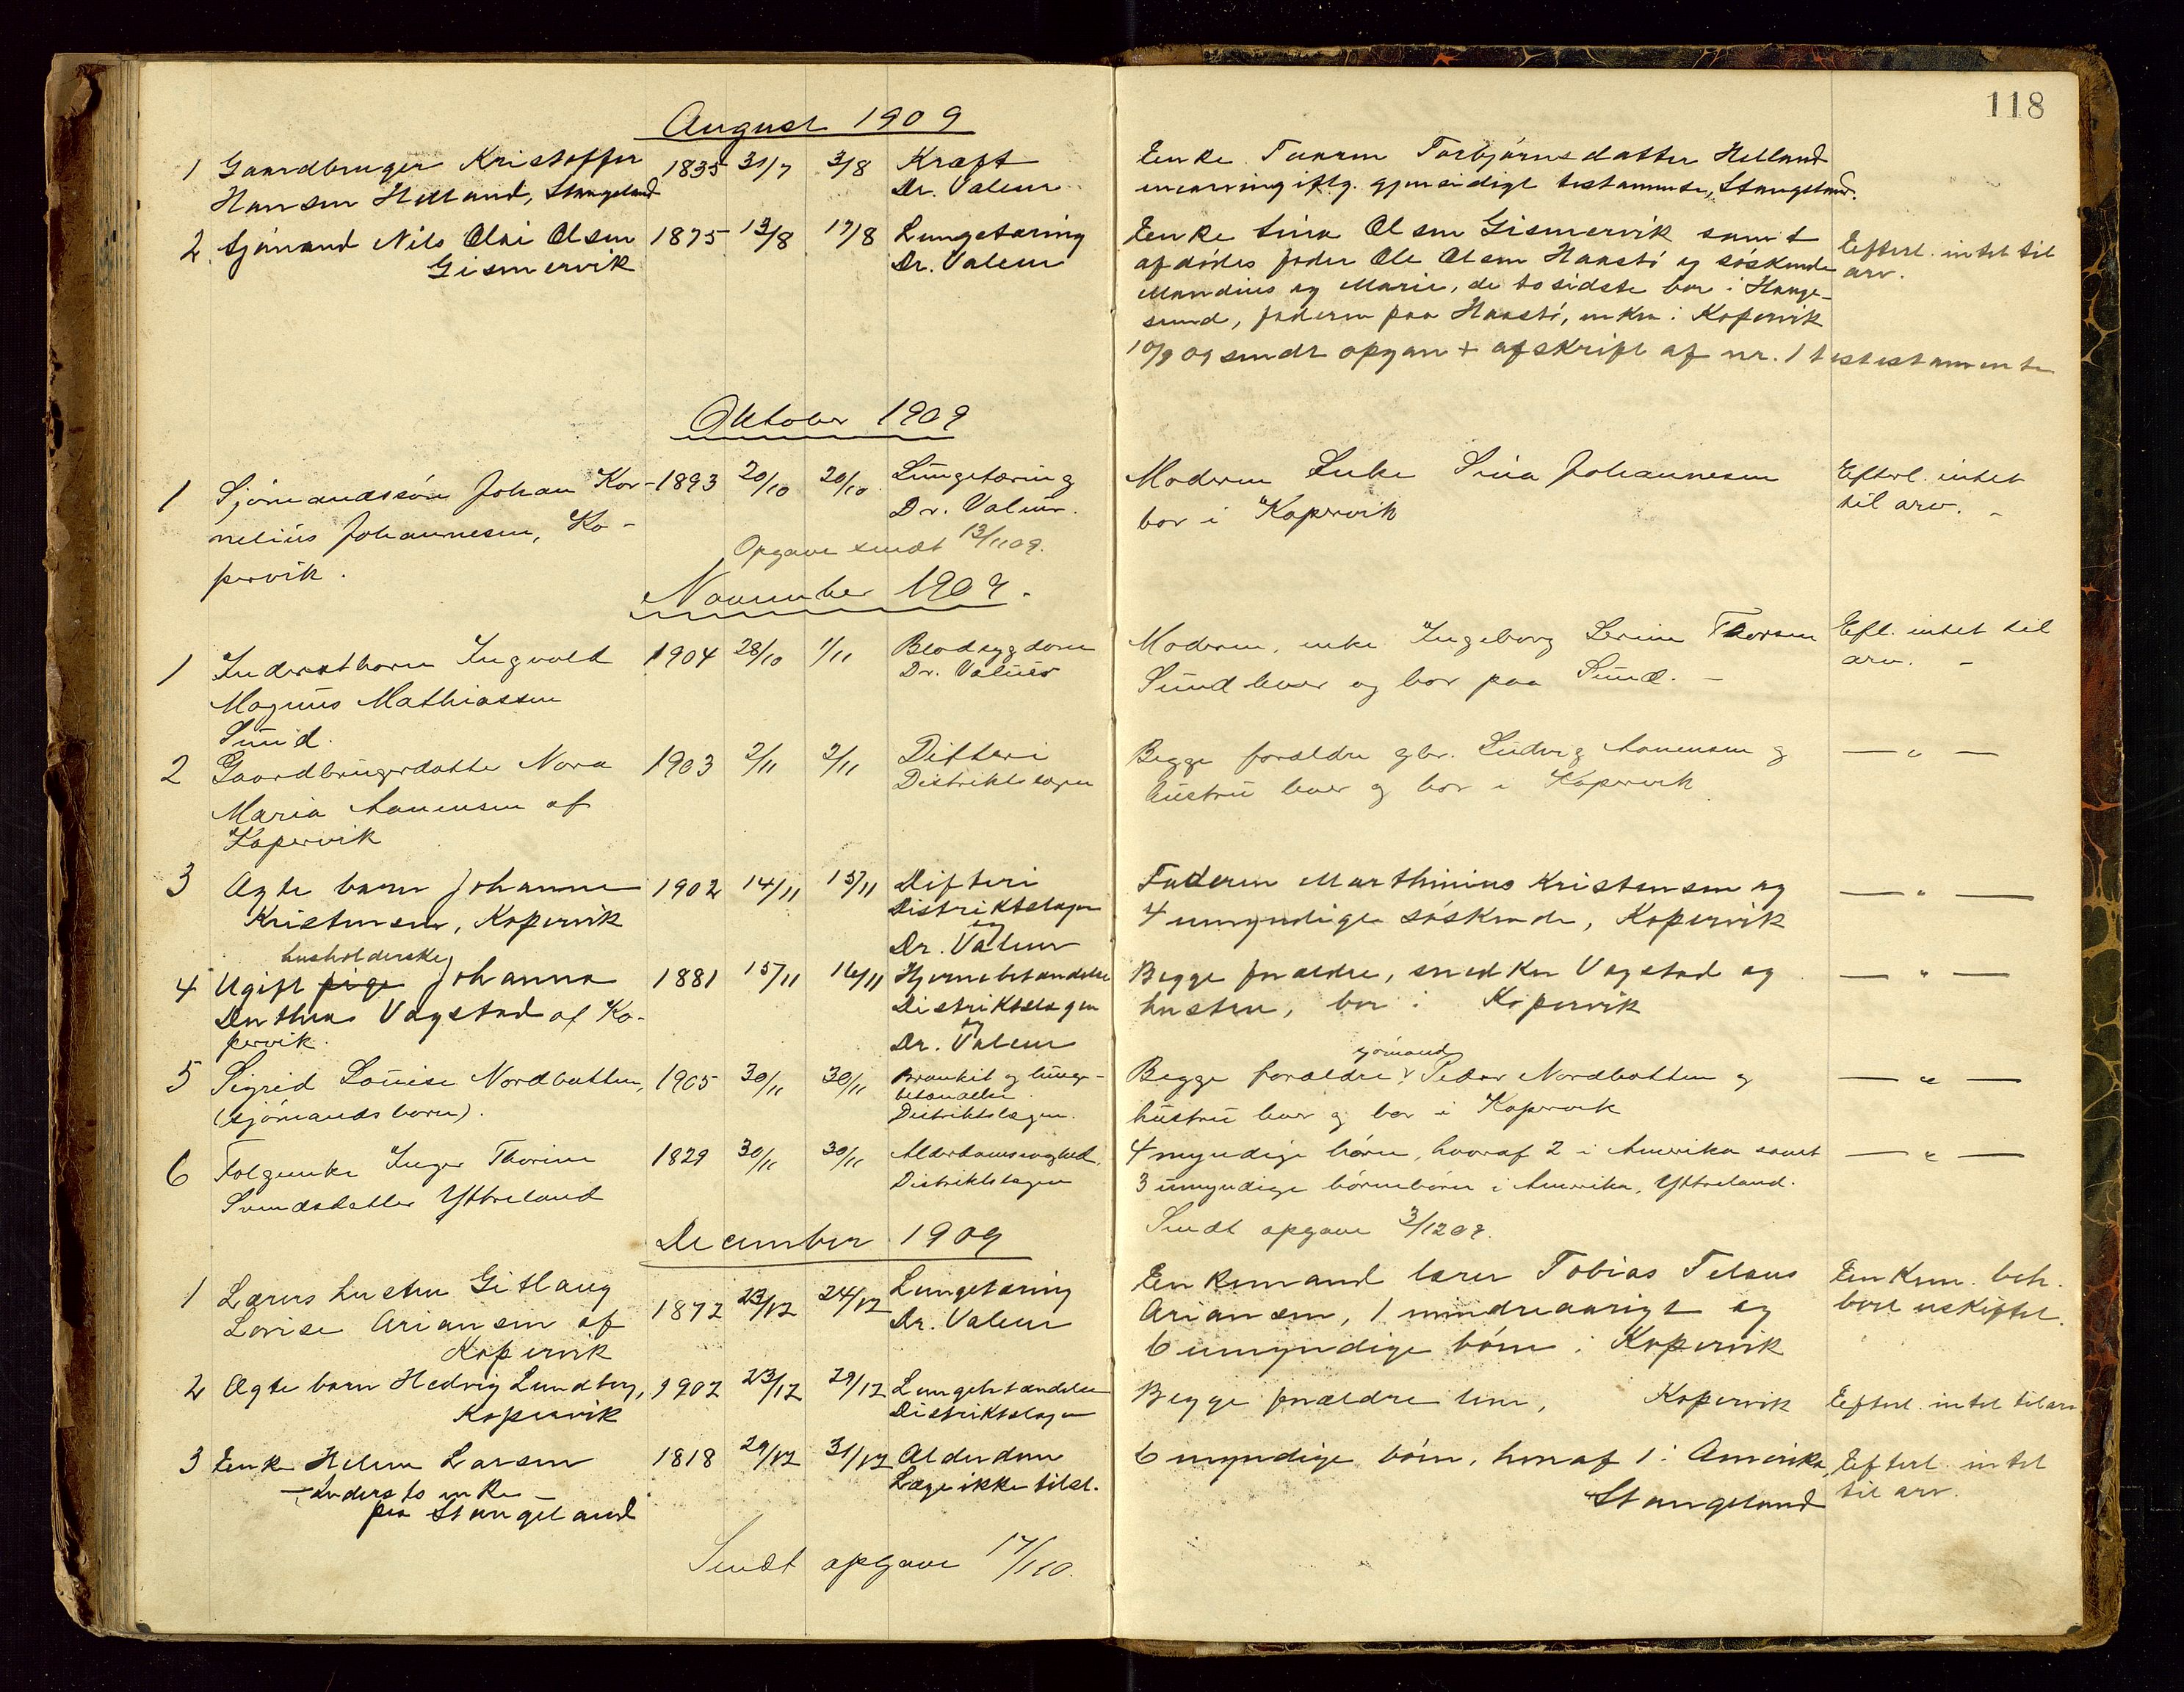 118
August 1909
1 Gaardbruger Kristoffer 1835 31/7 3/8 Kræft Enke Taaran Torbjørnsdatter Helland
Hansen Helland, Stangeland Dr. Valeur enearving iflg. gjensidigt testamente, Stangeland.
2 Sjømand Nils Olai Olsen 1875 13/8 17/8 Lungetæring Enke Sina Olsen Gismervik samt Efterl. intet til
Gismervik Dr. Valeur afdødes fader Ole Olsen Haastø og søskende arv.
Mandius og Marie, de to sidste bor i Hauge-
sund, faderen paa Haastø, enken i Kopervik
10/9 09 sendt opgav + afskrift af nr. 1 testestamente
Oktober 1909
1 Sjømandssøn Johan Kor- 1893 20/10 20/10 Lungetæring Moderen Enke Sina Johannesen Efterl. intet
nelius Johannesen, Ko- Dr. Valeur. bor i Kopervik til arv. -
pervik. Opgave sendt 13/11 09.
November 1909.
1 Inderstbarn Ingvald 1904 28/10 1/11 Blodsygdom Moderen, enke Ingeborg Serine Thorsen Eftl. intet til
Magnus Mathiassen Dr. Valeur Sund lever og bor paa Sund. - arv. -
Sund.
2 Gaardbrugerdatte Nora 1903 2/11 2/11 Difteri Begge forældre gbr. Ludvig Aanensen og — " —
Maria Aanensen af Distriktslægen hustru lever og bor i Kopervik
Kopervik
3 Ægte barn Johanne 1902 14/11 15/11 Difteri Faderen Marthinius Kristensen og — " —
Kristensen, Kopervik Distriktslægen 4 umyndige søskende, Kopervik
og
Dr. Valeur
husholderske
4 Ugift pige Johanna 1881 15/11 16/11 Hjernebetændelse Begge forældre, snedker Vagstad og — " —
Dorthea Vagstad af Ko- Distriktslægen hustru, bor i Kopervik
pervik. og
Dr. Valeur
sjømand
5 Sigrid Louise Nordbotten, 1905 30/11 30/11 Bronkit og lunge- Begge forældre Peder Nordbotten og — " —
(sjømandsbarn). betændelse hustru lever og bor i Kopervik
Distriktslægen.
6 Folgeenke Inger Thorine 1829 30/11 30/11 Alderdomssvaghed, 4 myndige børn, hvoraf 2 i Amerika samt — " —
Svendsdatter Yttreland Distriktslægen 3 umyndige børnebørn i Amerika, Yttreland.
Sendt opgave 3/12 09.
December 1909
1 Lærers hustru Gitlaug 1872 23/12 24/12 Lungetæring Enkemand lærer Tobias Teleus Enkem. beh.
Lovise Ariansen af Dr. Valeur Ariansen, 1 mindreaarigt og boet uskiftet.
Kopervik 6 umyndige børn i Kopervik
2 Ægte barn Hedvig Lundberg, 1902 23/12 29/12 Lungebetændelse Begge forældre lever, Kopervik Efterl. intet til arv
Kopervik Distriktslægen
3 Enke Helene Larsen 1818 29/12 31/12 Alderdom 6 myndige børn, hvoraf 1 i Amerika, Efterl. intet
— inderstenke — Læge ikke tilst. Stangeland til arv.
paa Stangeland
Sendt opgave 17/1 10.